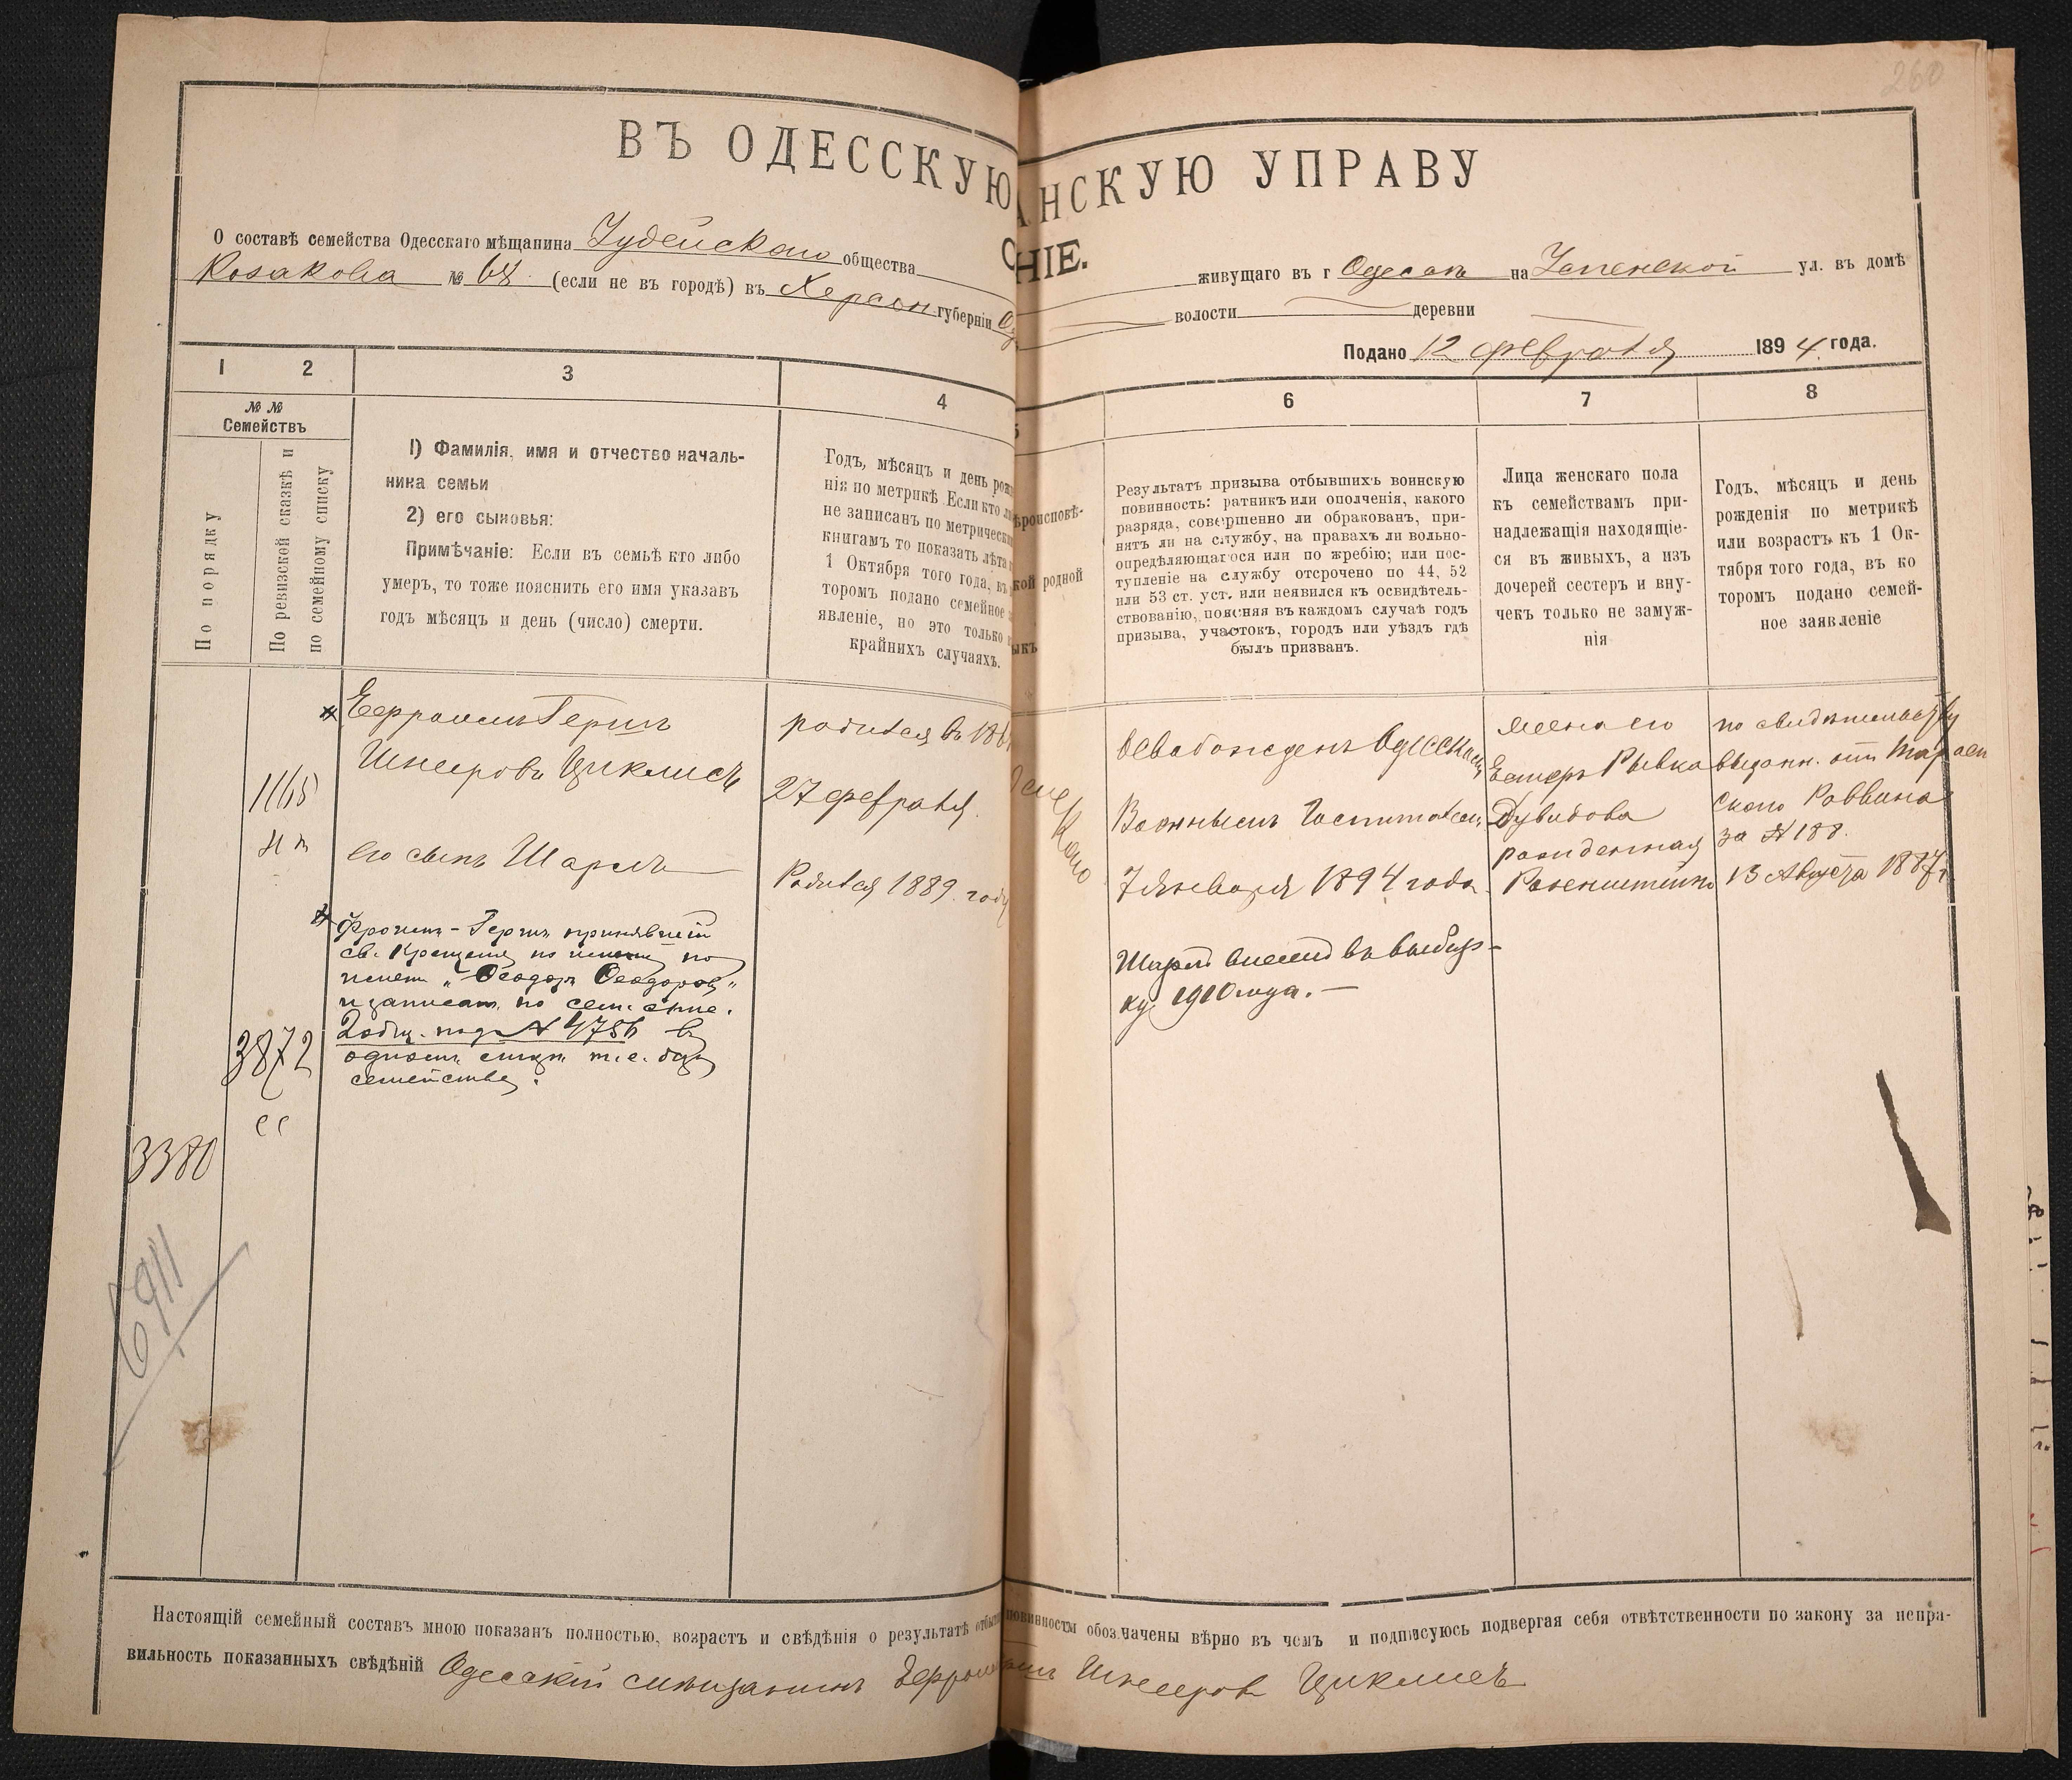 260
ВЪ ОДЕССКУЮ
АНСКУЮ УПРАВУ
НІЕ.
О составѣ семейства Одесскаго мѣщанина Іудейскаго общества
живущаго въ г Одессѣ на Успенской ул. въ домѣ
Козакова № 68 (если не въ городѣ) въ Херсон губерніи
волости деревни
Подано 12 февраля 1894 года.
1 2 3 4
6 7 8
№ №
Семействъ
По порядку
По ревизской сказкѣ и
по семейному списку
1) Фамилія, имя и отчество началь-
ника семьи
2) его сыновья:
Примѣчаніе: Если въ семьѣ кто либо
умеръ, то тоже пояснить его имя указавъ
годъ мѣсяцъ и день (число) смерти.
Годъ, мѣсяцъ и день рож
нія по метрикѣ Если кто
не записанъ по метрически
книгамъ то показать лѣта
1 Октября того года, въ
торомъ подано семейное
явленіе, но это только
крайнихъ случаяхъ.
ѣроисповѣ-
кой родной
ыкъ
Результатъ призыва отбывшихъ воинскую
повинность: ратникъ или ополченія, какого
разряда, совершенно ли обракованъ, при-
нятъ ли на службу, на правахъ ли вольно-
опредѣляющагося или по жребію; или пос-
тупленіе на службу отсрочено по 44, 52
или 53 ст. уст. или неявился къ освидѣтель-
ствованію, поясняя въ каждомъ случаѣ годъ
призыва, участокъ, городъ или уѣздъ гдѣ
былъ призванъ.
Лица женскаго пола
къ семействамъ при-
надлежащія находящіе-
ся въ живыхъ, а изъ
дочерей сестеръ и вну-
чекъ только не замуж-
нія
Годъ, мѣсяцъ и день
рожденія по метрикѣ
или возрастъ къ 1 Ок-
тября того года, въ ко
торомъ подано семей-
ное заявленіе
Ефроимъ Гершъ
Шнееровъ Циклисъ
1165
его сынъ Шарль
родился въ 186
27 февраля
Родился 1889 году
Освобожденъ Одесскимъ
Военнымъ Госпиталемъ
7 января 1894 года
Шарль внесенъ въ выбор-
ку 1910 года. —
жена его
Естеръ Рывка
Дувидова
рожденная
Розенштейнъ
по свидѣтельству
выданн. отъ
скаго Раввина
за № 188.
13 Августа 1887 г.
Фроимъ-Гершъ принявшій
св. Крещеніе по
имени „Ѳеодоръ Ѳеодоровъ"
и записанъ по сем. спис.
2 общ. подъ № 4756 въ
одномъ лицѣ т. е. безъ
семейства.
3872
сс
3380
6911
Настоящій семейный составъ мною показанъ полностью, возрастъ и свѣдѣнія о результатѣ отбыт повинности обозначены вѣрно въ чемъ и подписуюсь подвергая себя отвѣтственности по закону за непра-
вильность показанныхъ свѣдѣній Одесскій мѣщанинъ Ефроимъ Гершъ Шнееровъ Циклисъ